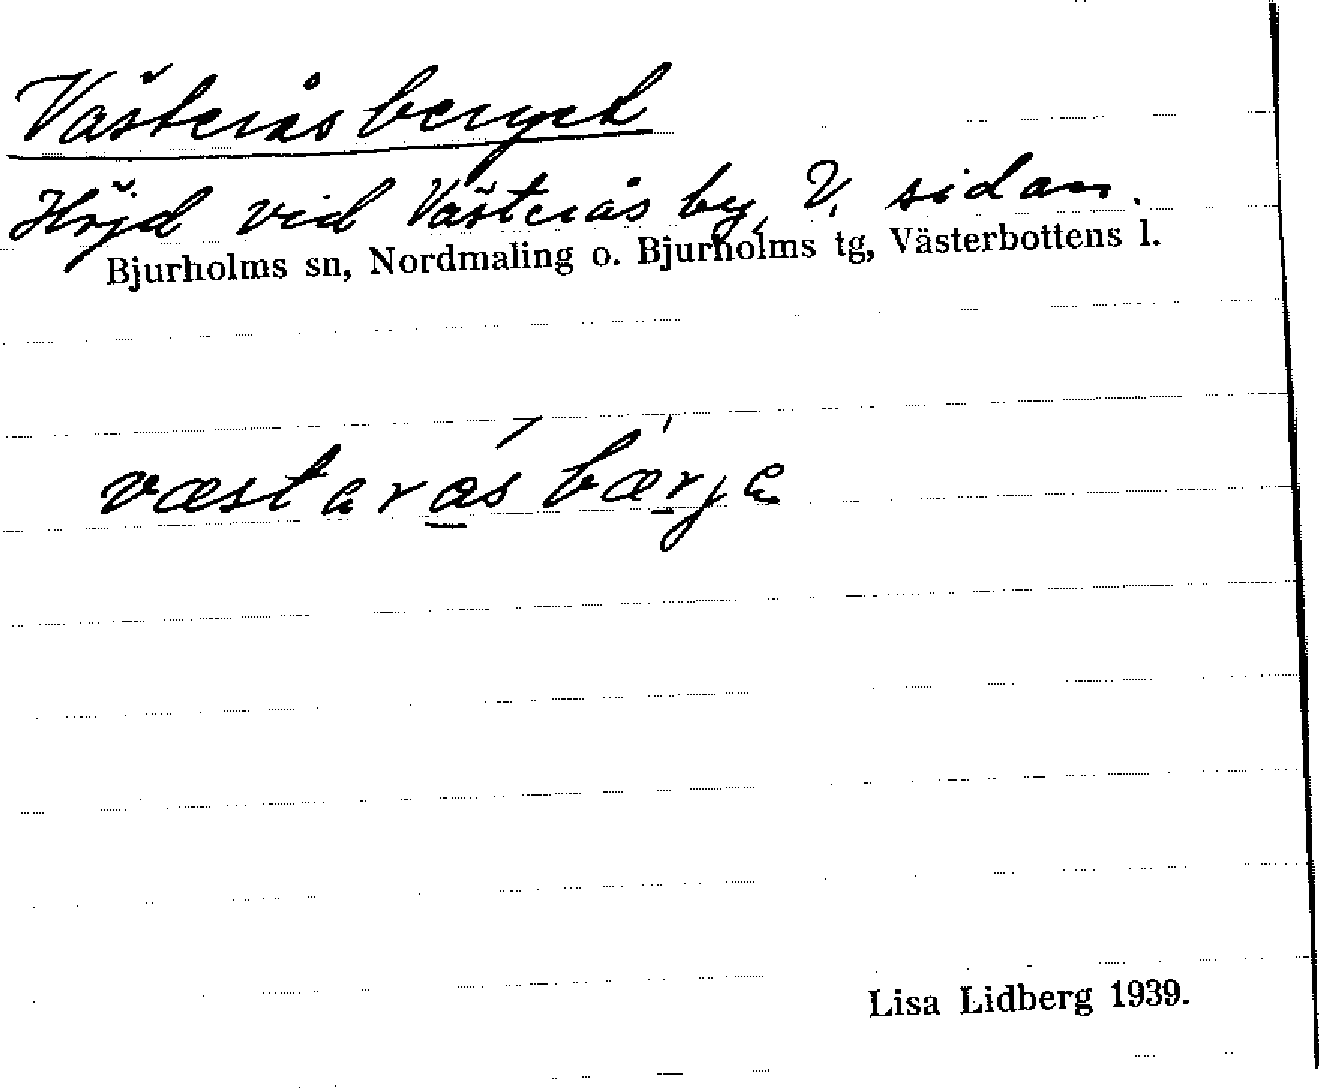 Västeråsberget
Höjd vid Västerås by, V. sidan.
Bjurholms sn, Nordmaling o. Bjurholms tg, Västerbottens l.
væstaræsbærjə
Lisa Lidberg 1939.